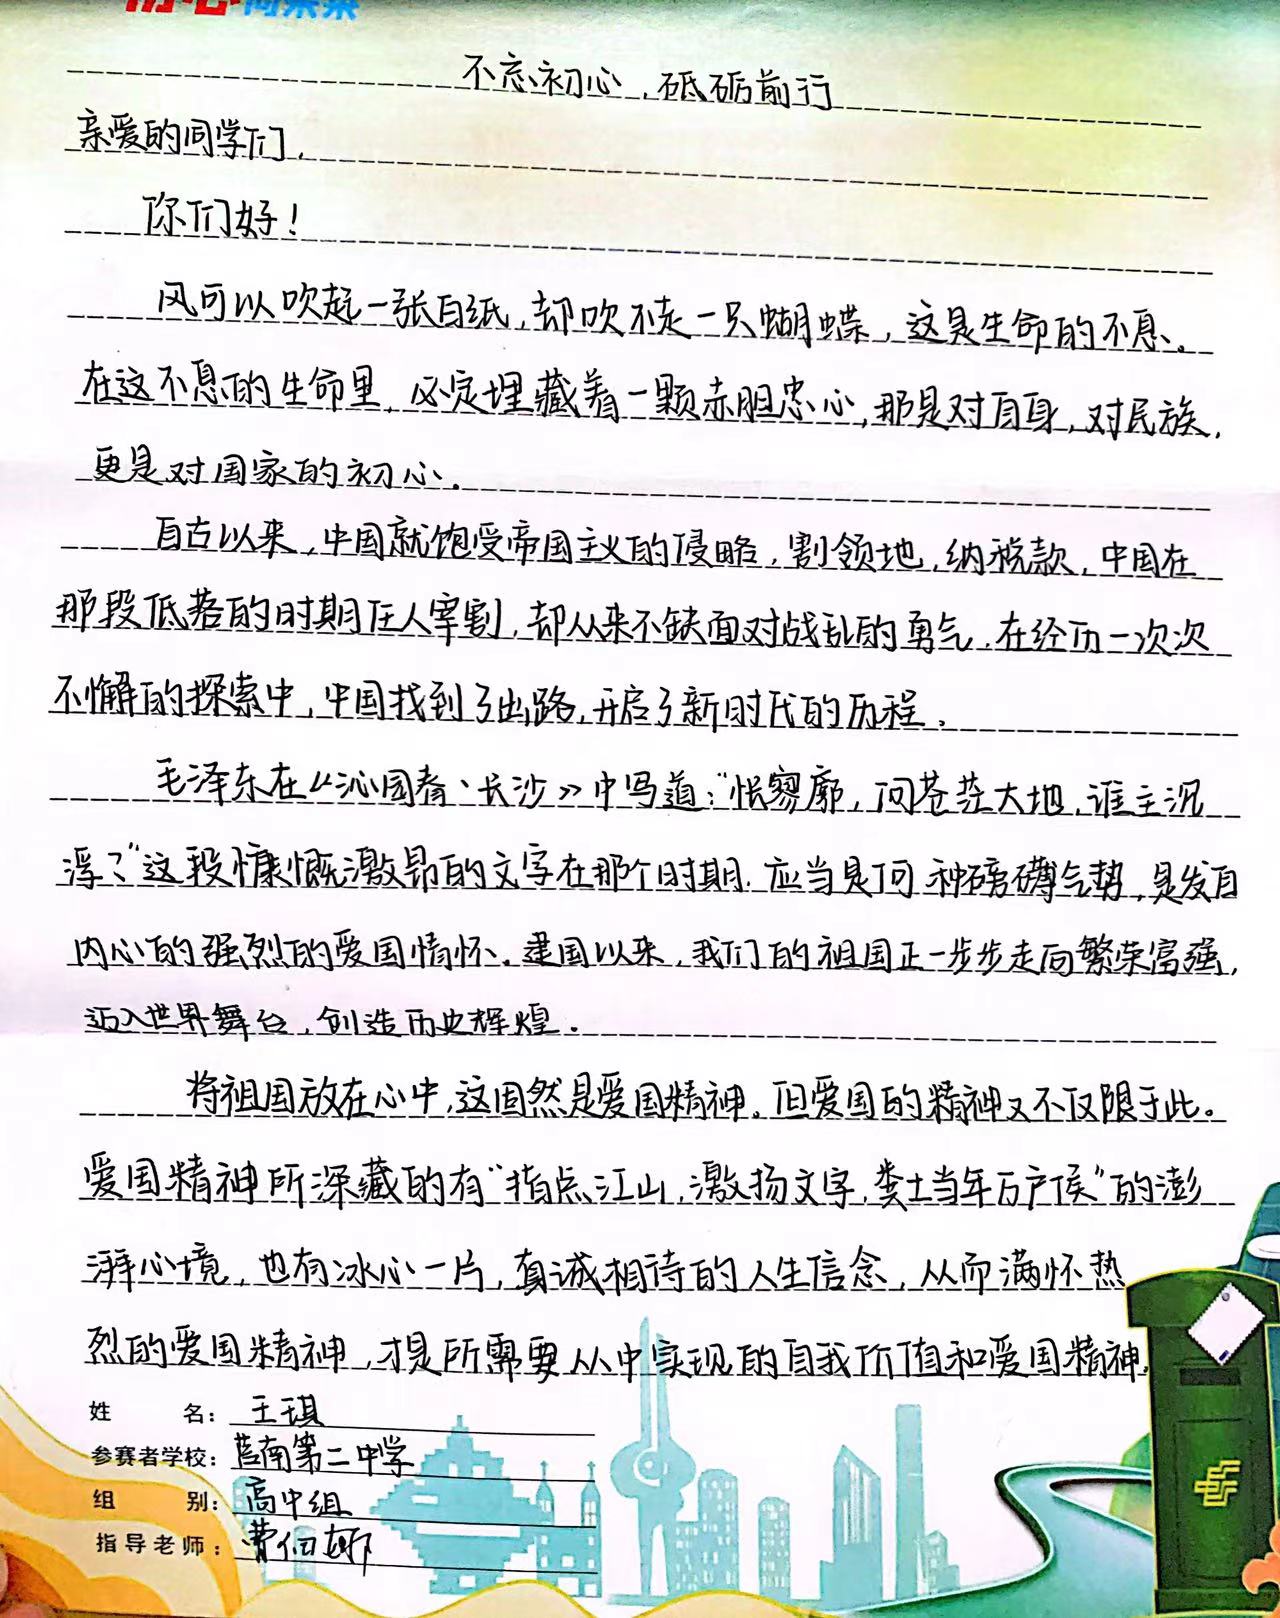 不忘初心，砥砺前行
亲爱的同学们，
你们好！
风可以吹起一张白纸，却吹不走一只蝴蝶，这是生命的不息。
在这不息的生命里，必定埋藏着一颗赤胆忠心，那是对自身，对民族，
更是对国家的初心。
自古以来，中国就饱受帝国主义的侵略，割领地，纳税款，中国在
那段低落的时期任人宰割，却从来不缺面对战乱的勇气，在经历一次次
不懈的探索中，中国找到了出路，开启了新时代的历程。
毛泽东在《沁园春·长沙》中写道："怅寥廓，问苍茫大地，谁主沉
浮？"这段慷慨激昂的文字在那个时期，应当是何种磅礴气势，是发自
内心的强烈的爱国情怀。建国以来，我们的祖国正一步步走向繁荣富强，
迈入世界舞台，创造历史辉煌。
将祖国放在心中，这固然是爱国精神。但爱国的精神又不仅限于此。
爱国精神所深藏的有"指点江山，激扬文字，粪土当年万户侯"的澎
湃心境，也有冰心一片，真诚相待的人生信念，从而满怀热
烈的爱国精神，才是所需要从中实现的自我价值和爱国精神。
姓名：王琪
参赛者学校：莒南第二中学
组别：高中组
指导老师：费佰娜